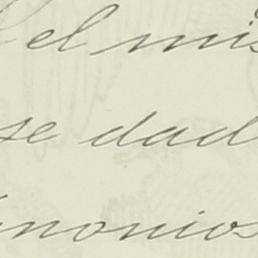 el mis
se dad
monios